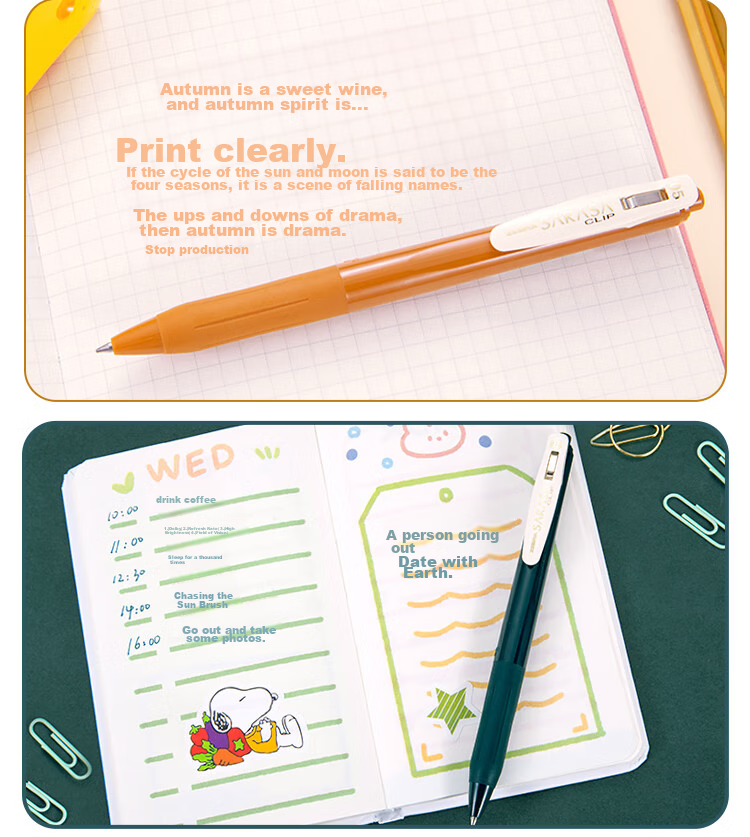 Autumn is a sweet wine,
and autumn spirit is...
Print clearly.
If the cycle of the sun and moon is said to be the
four seasons, it is a scene of falling names.
The ups and downs of drama,
then autumn is drama.
Stop production
SARASA
CLIP
0.5
WED
10:00
drink coffee
11:00
12:30
Sleep for a thousand
14:00
Chasing the
Sun Brush
16:00
Go out and take
some photos.
A person going
out
Date with
Earth.